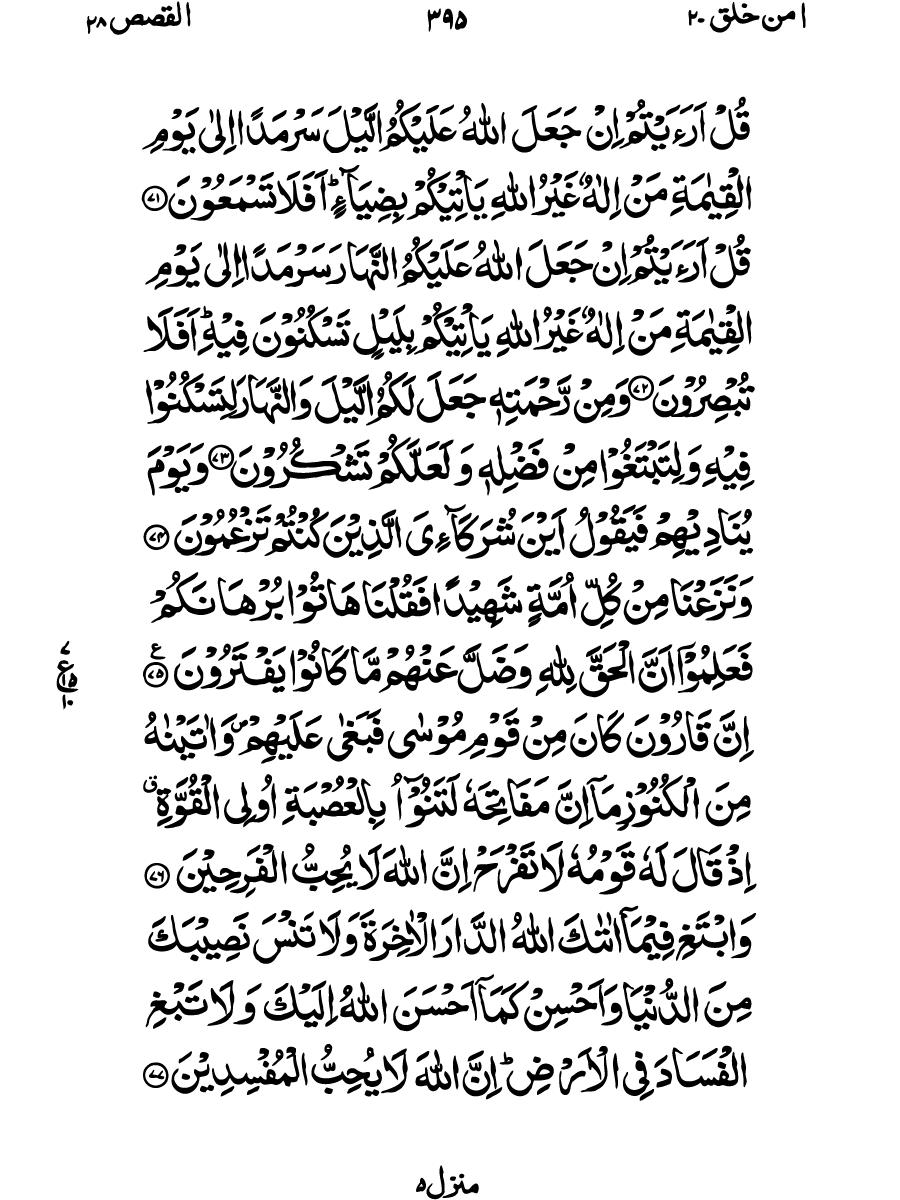 امن خلق ۲۰ ۳۹۵ القصص ۲۸
قُلْ اَرَءَيْتُمْ اِنْ جَعَلَ اللّٰهُ عَلَيْكُمُ الَّيْلَ سَرْمَدًا اِلٰى يَوْمِ
الْقِيٰمَةِ مَنْ اِلٰهٌ غَيْرُ اللّٰهِ يَاْتِيْكُمْ بِضِيَآءٍ ؕ اَفَلَا تَسْمَعُوْنَ ۝۷۱
قُلْ اَرَءَيْتُمْ اِنْ جَعَلَ اللّٰهُ عَلَيْكُمُ النَّهَارَ سَرْمَدًا اِلٰى يَوْمِ
الْقِيٰمَةِ مَنْ اِلٰهٌ غَيْرُ اللّٰهِ يَاْتِيْكُمْ بِلَيْلٍ تَسْكُنُوْنَ فِيْهِ ؕ اَفَلَا
تُبْصِرُوْنَ ۝۷۲ وَمِنْ رَّحْمَتِهٖ جَعَلَ لَكُمُ الَّيْلَ وَالنَّهَارَ لِتَسْكُنُوْا
فِيْهِ وَلِتَبْتَغُوْا مِنْ فَضْلِهٖ وَلَعَلَّكُمْ تَشْكُرُوْنَ ۝۷۳ وَيَوْمَ
يُنَادِيْهِمْ فَيَقُوْلُ اَيْنَ شُرَكَآءِىَ الَّذِيْنَ كُنْتُمْ تَزْعُمُوْنَ ۝۷۴
وَنَزَعْنَا مِنْ كُلِّ اُمَّةٍ شَهِيْدًا فَقُلْنَا هَاتُوْا بُرْهَانَكُمْ
فَعَلِمُوْۤا اَنَّ الْحَقَّ لِلّٰهِ وَضَلَّ عَنْهُمْ مَّا كَانُوْا يَفْتَرُوْنَ ۝۷۵ ع
۷ ع ۱۵ ۱۰
اِنَّ قَارُوْنَ كَانَ مِنْ قَوْمِ مُوْسٰى فَبَغٰى عَلَيْهِمْ ۪ وَاٰتَيْنٰهُ
مِنَ الْكُنُوْزِ مَاۤ اِنَّ مَفَاتِحَهٗ لَتَنُوْٓاُ بِالْعُصْبَةِ اُولِى الْقُوَّةِ ۗ
اِذْ قَالَ لَهٗ قَوْمُهٗ لَا تَفْرَحْ اِنَّ اللّٰهَ لَا يُحِبُّ الْفَرِحِيْنَ ۝۷۶
وَابْتَغِ فِيْمَاۤ اٰتٰىكَ اللّٰهُ الدَّارَ الْاٰخِرَةَ وَلَا تَنْسَ نَصِيْبَكَ
مِنَ الدُّنْيَا وَاَحْسِنْ كَمَاۤ اَحْسَنَ اللّٰهُ اِلَيْكَ وَلَا تَبْغِ
الْفَسَادَ فِى الْاَرْضِ ؕ اِنَّ اللّٰهَ لَا يُحِبُّ الْمُفْسِدِيْنَ ۝۷۷
منزل ۵